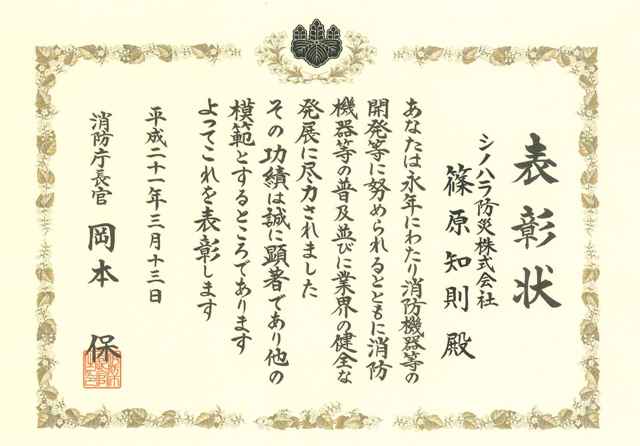 表彰状
シノハラ防災株式会社
篠原知則殿
あなたは永年にわたり消防機器等の
開発等に努められるとともに消防
機器等の普及並びに業界の健全な
発展に尽力されました
その功績は誠に顕著であり他の
模範とするところであります
よってこれを表彰します
平成二十一年三月十三日
消防庁長官 岡本 保